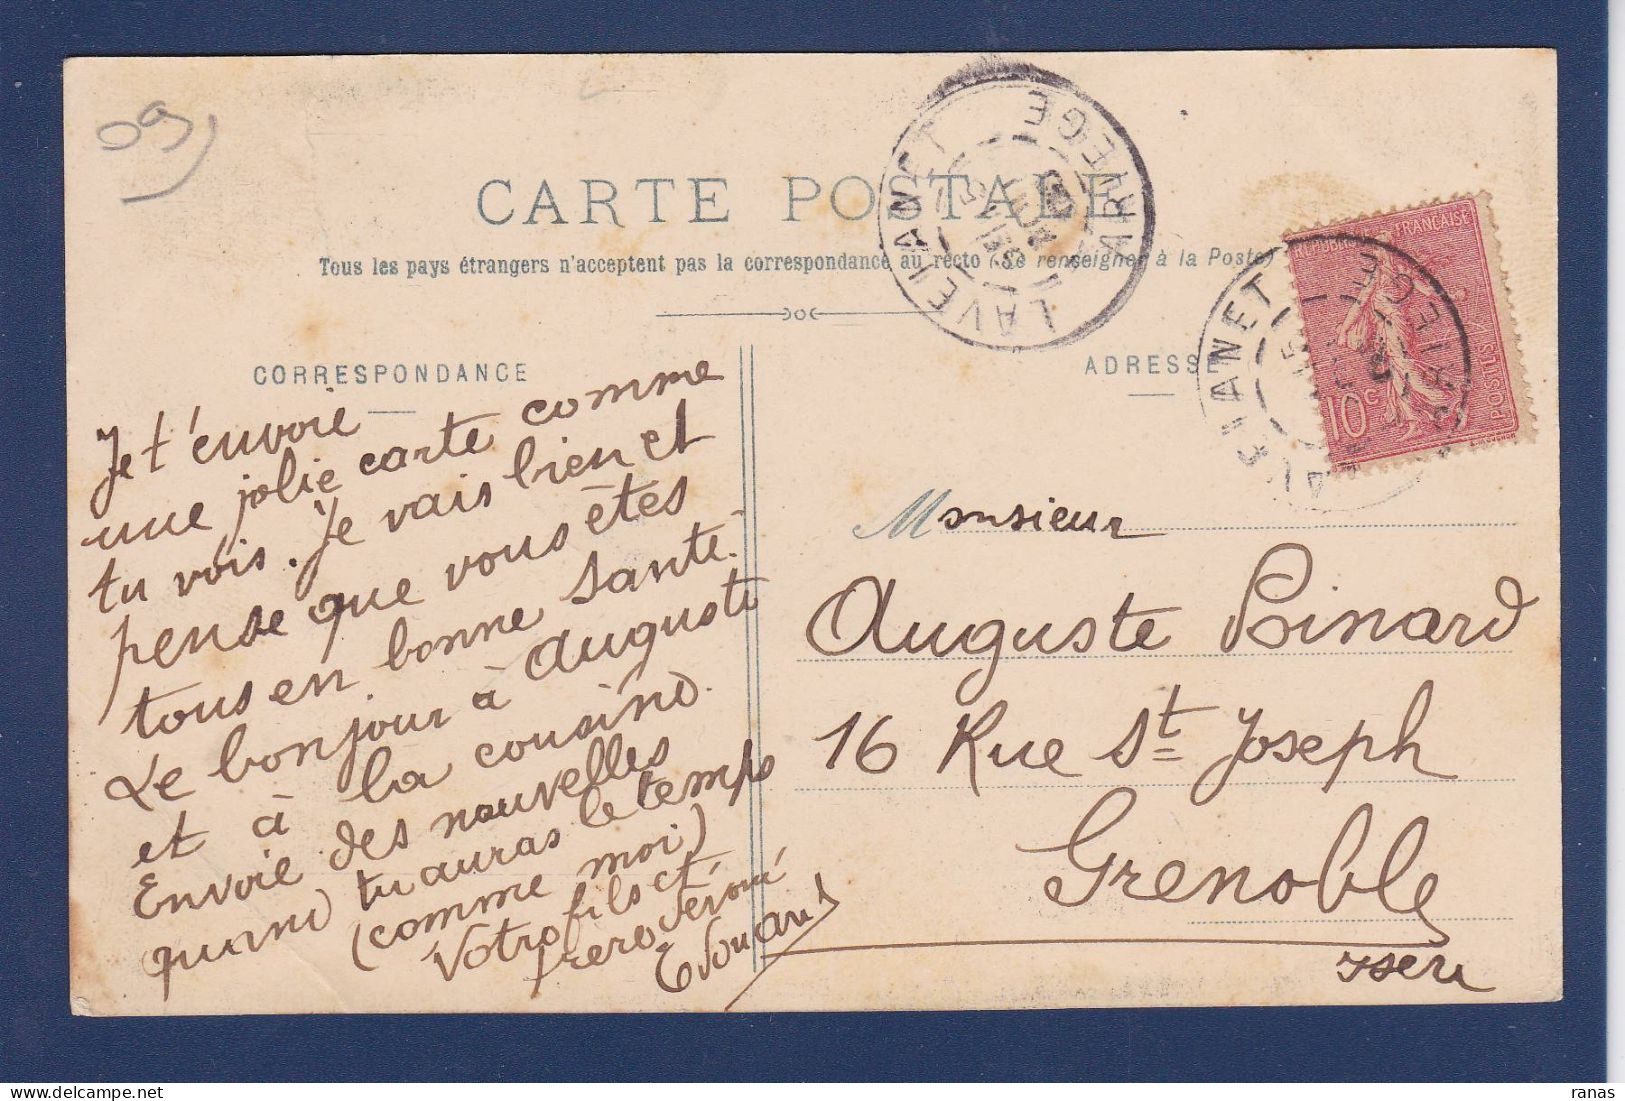 09
CARTE POSTALE
Tous les pays étrangers n'acceptent pas la correspondance au recto (Se renseigner à la Poste)
LAVELANET
ARIEGE
CORRESPONDANCE
Je t'envoie
une jolie carte comme
tu vois. Je vais bien et
pense que vous êtes
tous en bonne santé.
Le bonjour à Auguste
et à la cousine.
Envoie des nouvelles
quand tu auras le temps
(comme moi)
Votre fils et
frere dévoué
Edouard
ADRESSE
REPUBLIQUE FRANÇAISE
10c
POSTES
LAVELANET
ARIEGE
Monsieur
Auguste Pinard
16 Rue St Joseph
Grenoble
Isere
ranas